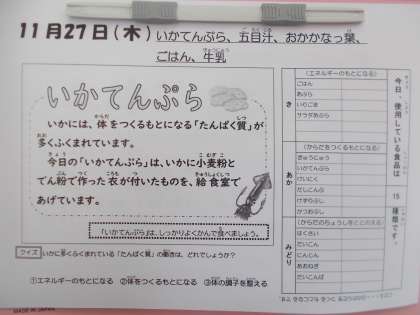 11月27日(木) いかてんぷら、五目汁、おかかなっ葉、
ごはん、牛乳
いかてんぷら
いかには、体をつくるもとになる「たんぱく質」が
多くふくまれています。
今日の「いかてんぷら」は、いかに小麦粉と
でん粉で作った衣が付いたものを、給食室で
あげています。
「いかてんぷら」は、しっかりよくかんで食べましょう。
クイズ いかに多くふくまれている「たんぱく質」の働きは、どれでしょうか?
①エネルギーのもとになる ②体をつくるもとになる ③体の調子を整える
今日、使用している食品は 15 種類です。
き
(エネルギーのもとになる)
ごはん
あぶら
いりごま
サラダあぶら
あか
(からだをつくるもとになる)
ぎゅうにゅう
いかてんぷら
けいにく
だしこんぶ
けずりぶし
かつおぶし
みどり
(からだのちょうしをととのえる)
はくさい
だいこん
にんじん
あおねぎ
だいこんば
MADE IN JAPAN